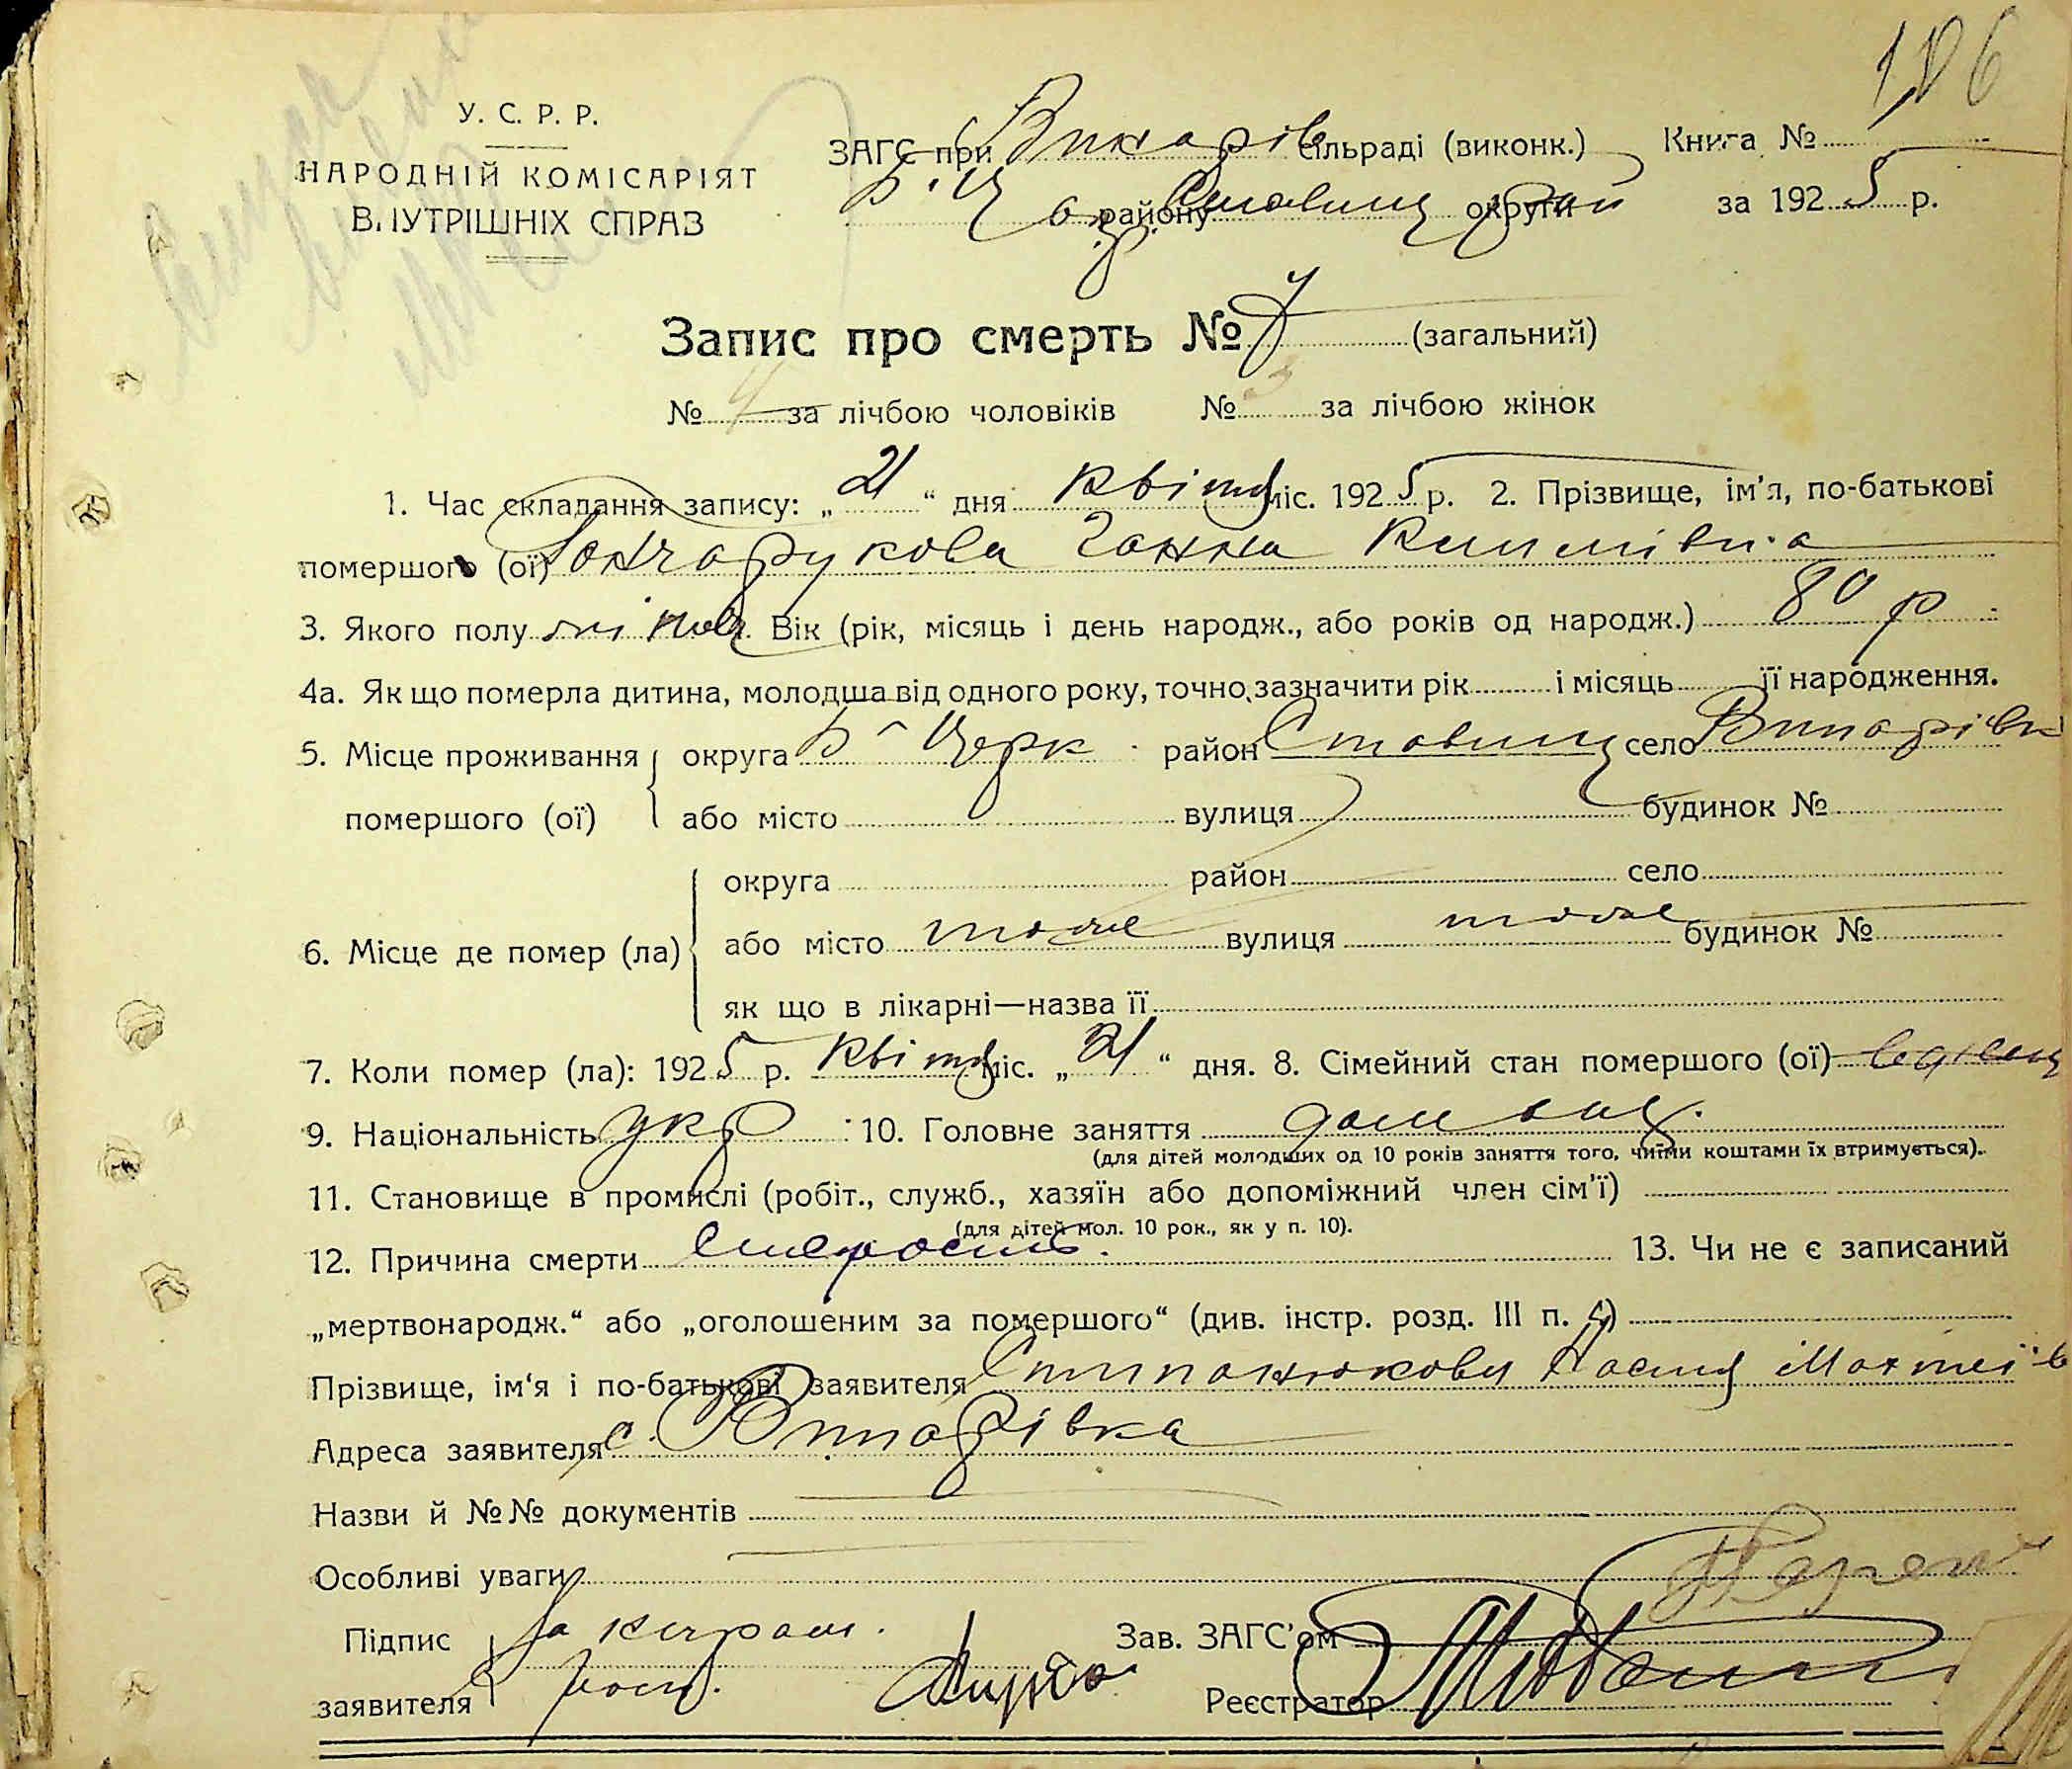 106
У. С. Р. Р.
НАРОДНІЙ КОМІСАРІЯТ
ВНУТРІШНІХ СПРАВ
ЗАГС при Винарів сільраді (виконк.) Книга №
Б. Ц. окр. району Ставищ округи рай за 1925 р.
Запис про смерть № 7 (загальний)
№ 4 за лічбою чоловіків № 3 за лічбою жінок
1. Час складання запису: „21“ дня квітня міс. 1925 р. 2. Прізвище, ім'я, по-батькові
помершого (ої) Гончарукова Ганна
3. Якого полу жіноч. Вік (рік, місяць і день народж., або років од народж.) 80 р
4а. Як що померла дитина, молодша від одного року, точно зазначити рік і місяць її народження.
5. Місце проживання помершого (ої) округа Б-Церк район Ставищ село Винарівк
або місто вулиця будинок №
6. Місце де помер (ла) округа район село
або місто тоже вулиця тоже будинок №
як що в лікарні—назва її
7. Коли помер (ла): 1925 р. квітня міс. „21“ дня. 8. Сімейний стан помершого (ої)
9. Національність укр 10. Головне заняття
(для дітей молодших од 10 років заняття того, чиїми коштами їх втримується).
11. Становище в промислі (робіт., служб., хазяїн або допоміжний член сім'ї)
(для дітей мол. 10 рок., як у п. 10).
12. Причина смерти старость. 13. Чи не є записаний
„мертвонародж.“ або „оголошеним за помершого“ (див. інстр. розд. III п. 4)
Прізвище, ім‘я і по-батькові заявителя
Адреса заявителя с. Винарівка
Назви й №№ документів
Особливі уваги
Підпис заявителя За неграм. Зав. ЗАГС'ом
Реєстратор